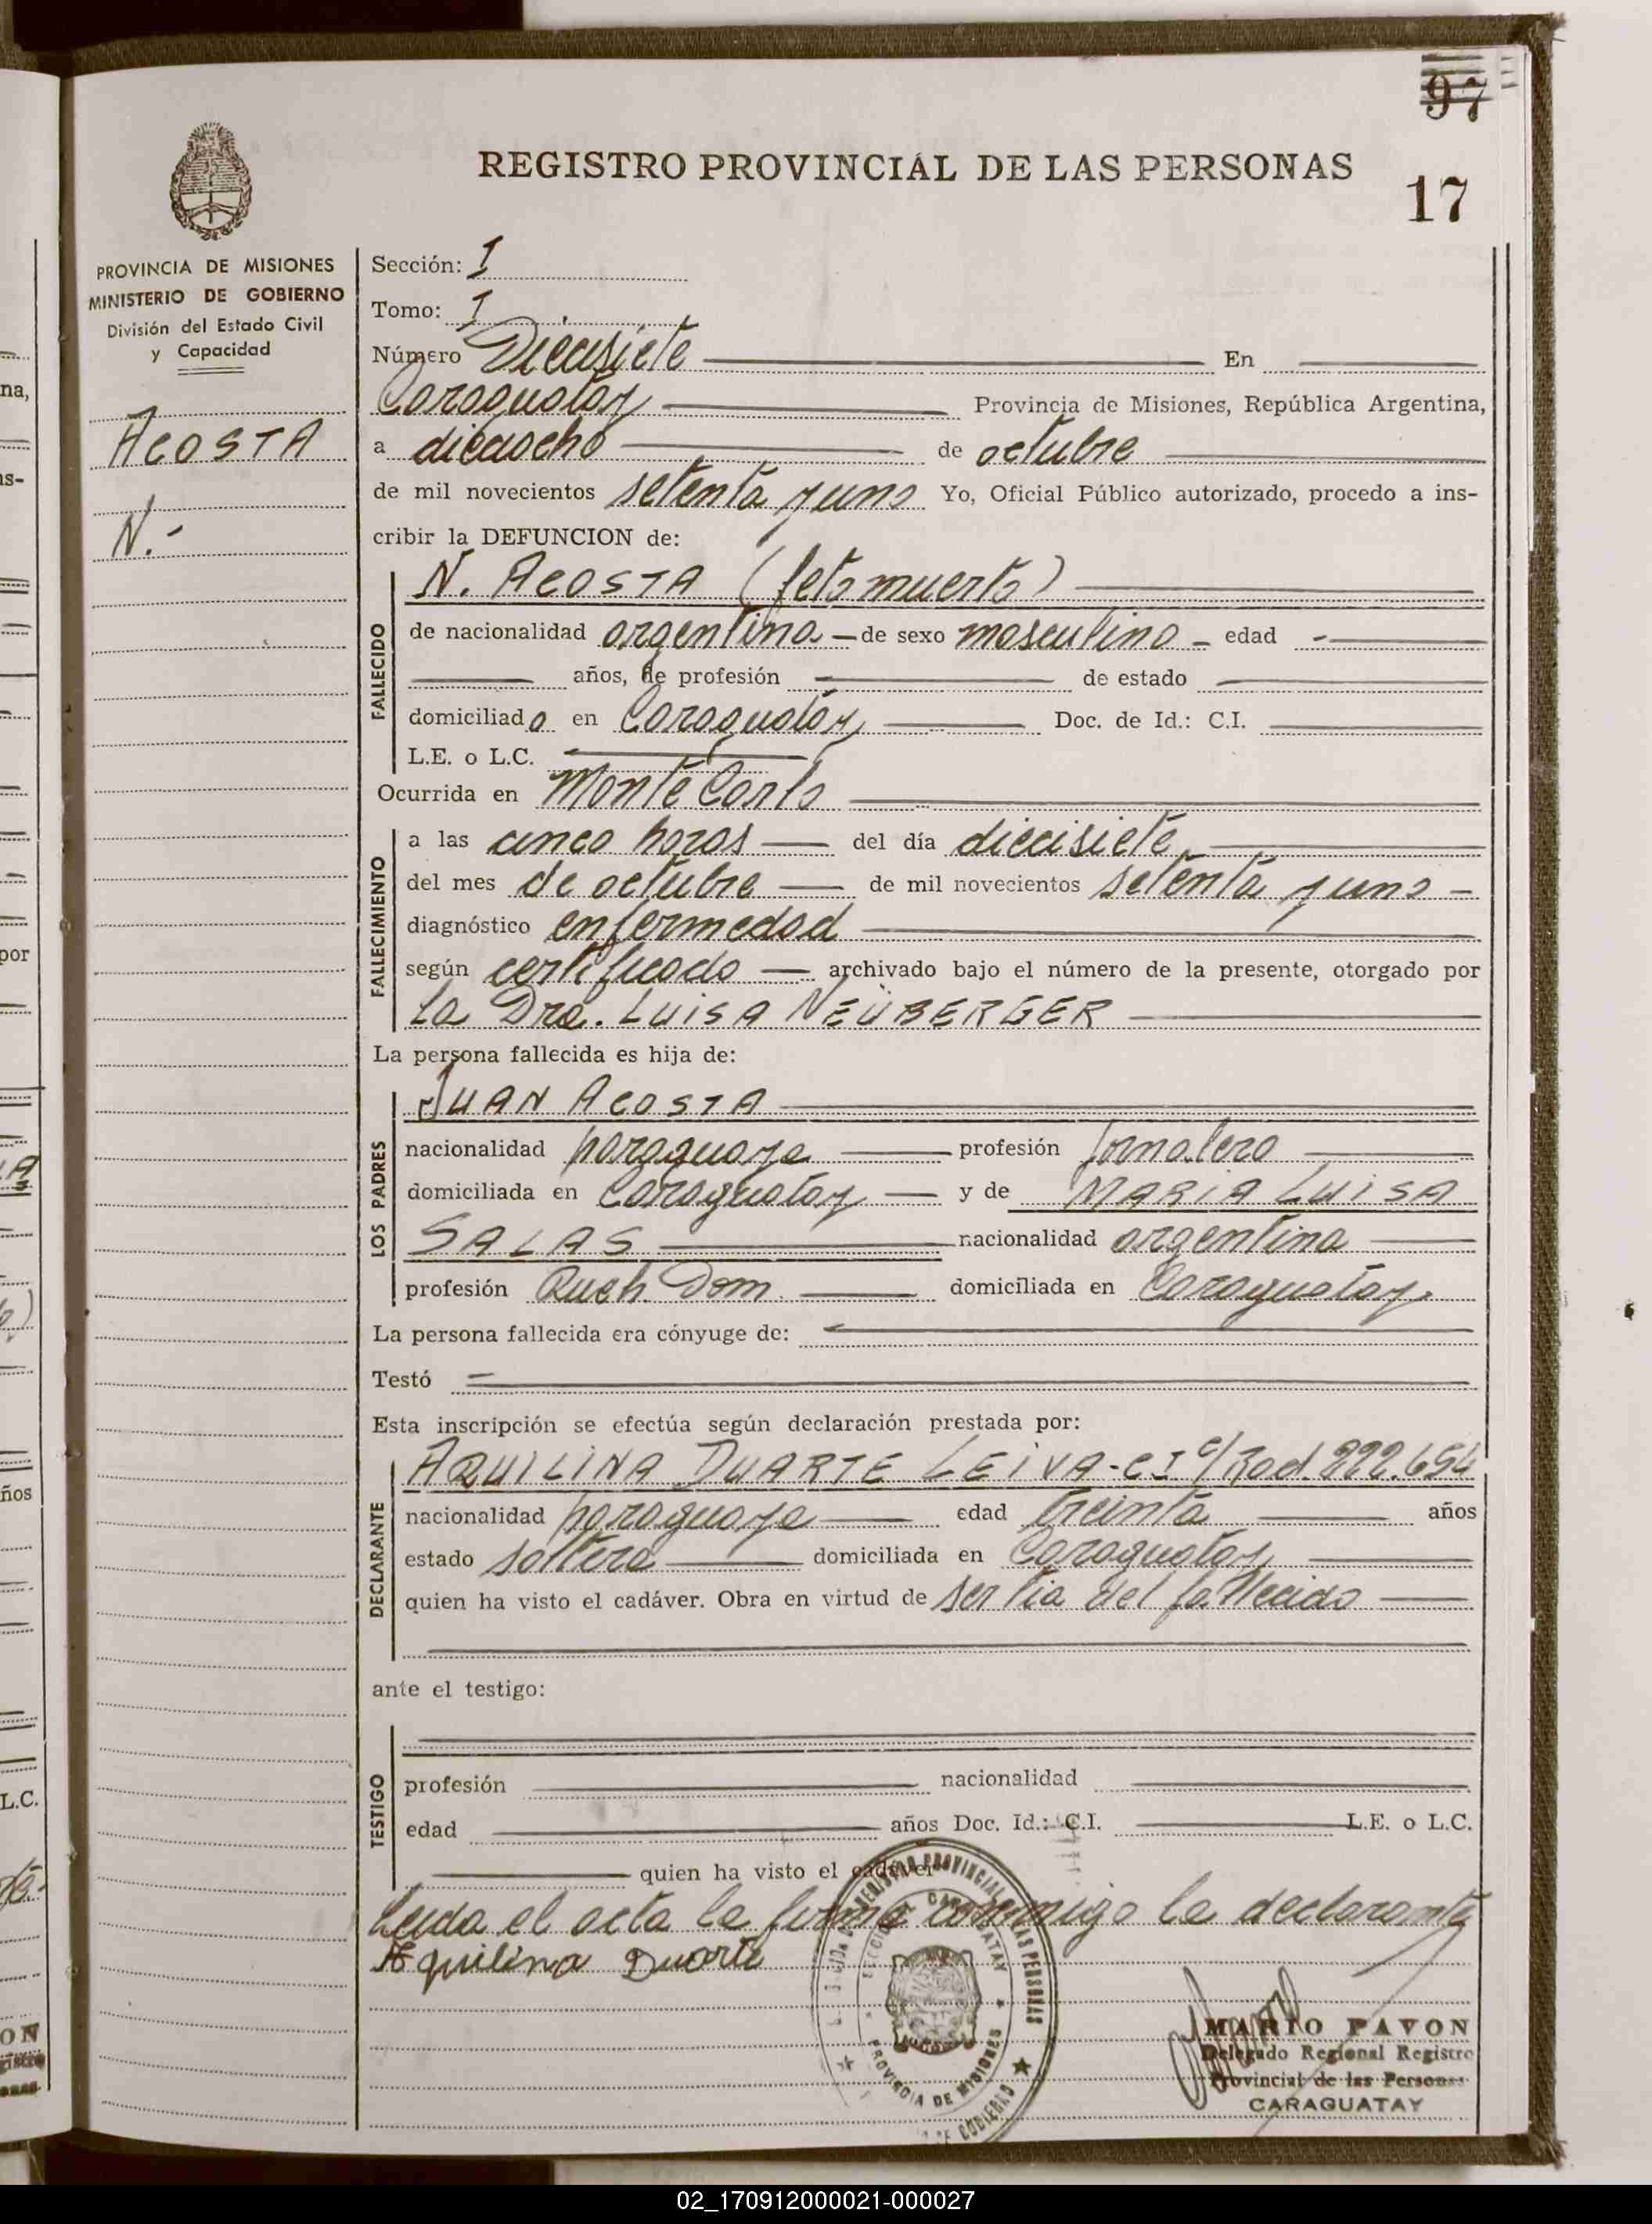 97
REGISTRO PROVINCIAL DE LAS PERSONAS
17
PROVINCIA DE MISIONES
MINISTERIO DE GOBIERNO
División del Estado Civil
y Capacidad
ACOSTA
N.-
Sección: I
Tomo: I
Número Diecisiete En
Caraguatay Provincia de Misiones, República Argentina,
a dieciocho de octubre
de mil novecientos setenta y uno Yo, Oficial Público autorizado, procedo a ins-
cribir la DEFUNCION de:
FALLECIDO
N. ACOSTA (feto muerto)
de nacionalidad argentina de sexo masculino edad
años, de profesión de estado
domiciliado en Caraguatay Doc. de Id.: C.I.
L.E. o L.C.
Ocurrida en Monte Carlo
FALLECIMIENTO
a las cinco horas del día diecisiete
del mes de octubre de mil novecientos setenta y uno
diagnóstico enfermedad
según certificado archivado bajo el número de la presente, otorgado por
La Dra. LUISA NEÜBERGER
La persona fallecida es hija de:
LOS PADRES
JUAN ACOSTA
nacionalidad paraguaya profesión Jornalero
domiciliada en Caraguatay y de MARIA LUISA
SALAS nacionalidad argentina
profesión Queh. Dom. domiciliada en Caraguatay
La persona fallecida era cónyuge de:
Testó
Esta inscripción se efectúa según declaración prestada por:
DECLARANTE
AQUILINA DUARTE LEIVA-CI c/Rad. 222.654
nacionalidad paraguaya edad treinta años
estado soltera domiciliada en Caraguatay
quien ha visto el cadáver. Obra en virtud de ser tia del fallecido
ante el testigo:
TESTIGO
profesión nacionalidad
edad años Doc. Id.: C.I. L.E. o L.C.
quien ha visto el cadáver
Leida el acta la firma conmigo la declarante
Aquilina Duarte
REGISTRO PROVINCIAL DE LAS PERSONAS
CARAGUATAY
PROVINCIA DE MISIONES
DE GOBIERNO
MARIO PAVON
Delegado Regional Registro
Provincial de las Personas
CARAGUATAY
02_170912000021-000027